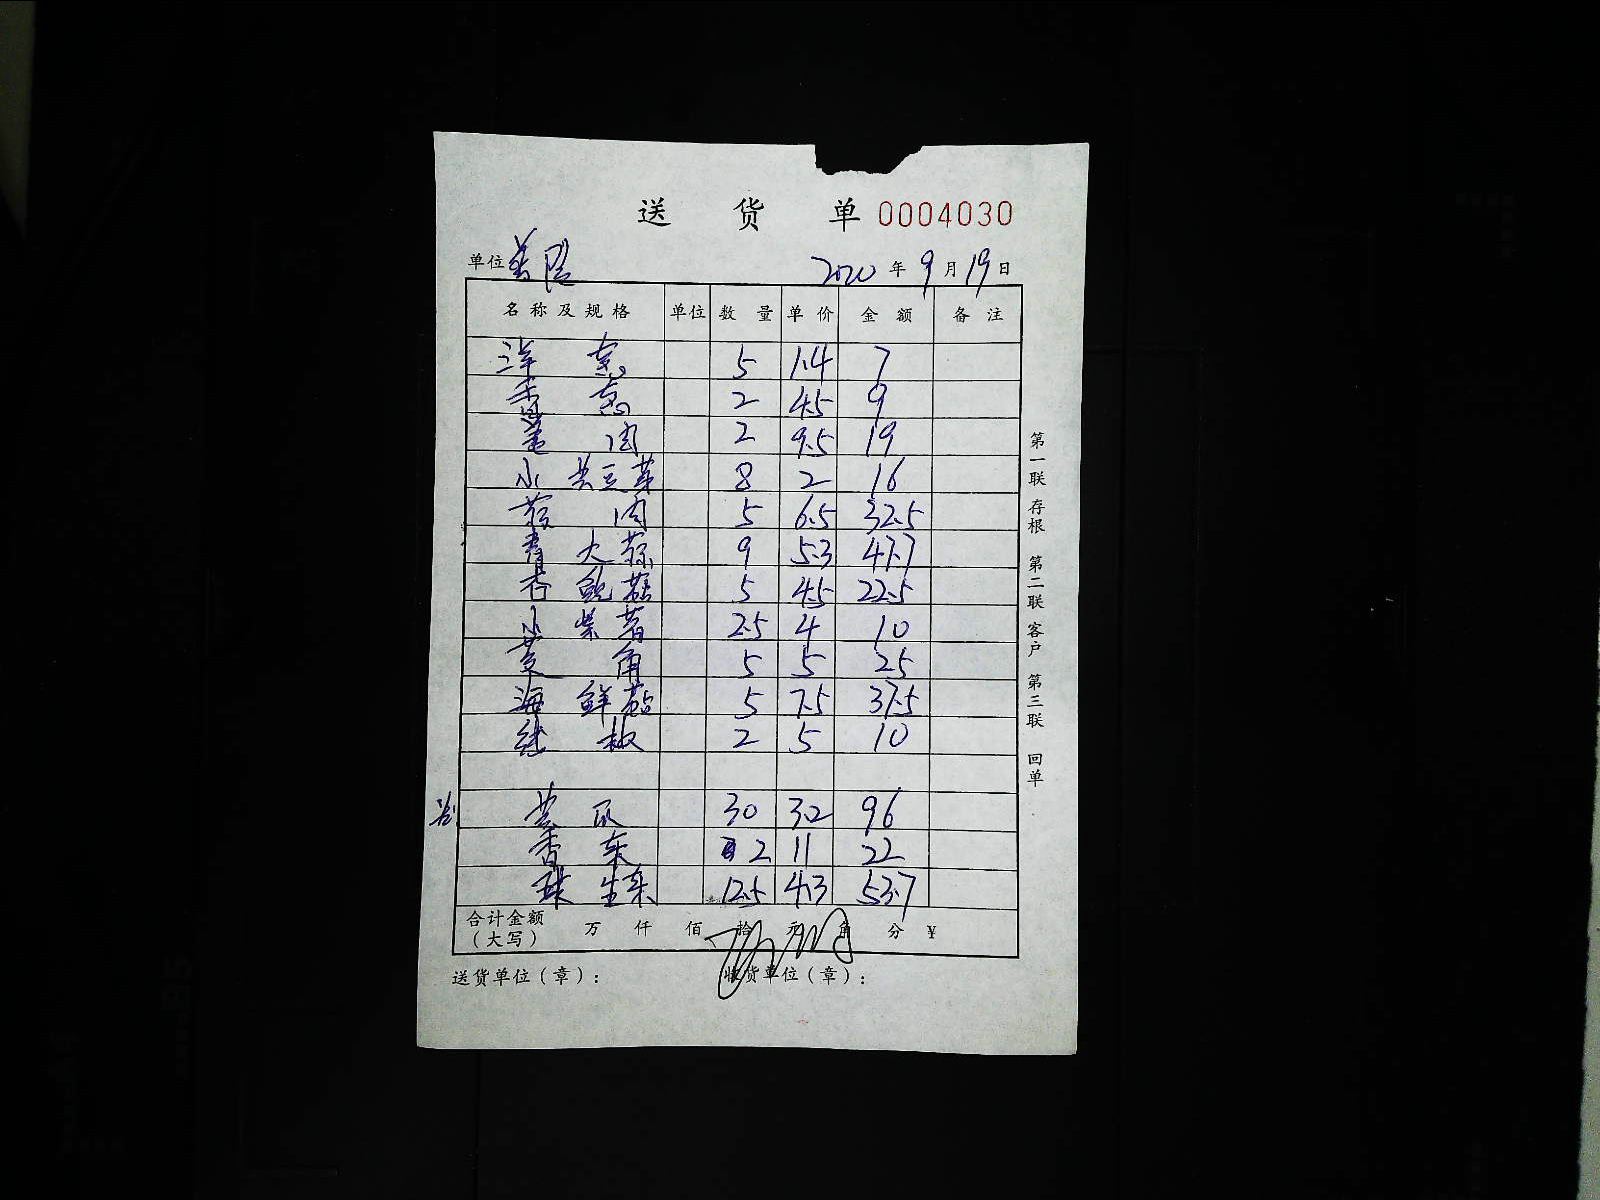 送 货 单 0004030
单位 2020 年 9 月 19 日
名称及规格 单位 数量 单价 金额 备注
洋葱 5 1.4 7
香葱 2 4.5 9
姜肉 2 9.5 19
小黄豆芽 8 2 16
蒜肉 5 6.5 32.5
青大蒜 9 5.3 47.7
杏鲍菇 5 4.5 22.5
小紫薯 2.5 4 10
菱角 5 5 25
海鲜菇 5 7.5 37.5
红椒 2 5 10
黄瓜 30 3.2 96
香菜 2 11 22
球生菜 12.5 4.3 53.7
合计金额（大写） 万 仟 佰 拾 元 角 分 ¥
送货单位（章）： 收货单位（章）：
第一联 存根 第二联 客户 第三联 回单